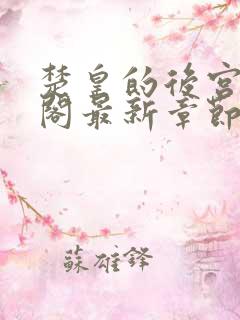 楚皇的後宮
閣最新章節
蘇雄鋒